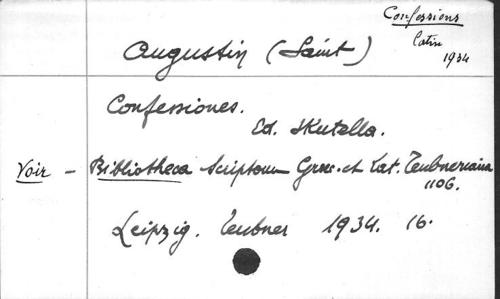 Confessions
Latin
1934
Augustin (Saint)
Confessiones.
Ed. Skutella.
Voir - Bibliotheca Scriptorum Graec. et Lat. Teubneriana
1106.
Leipzig. Teubner 1934. 16.